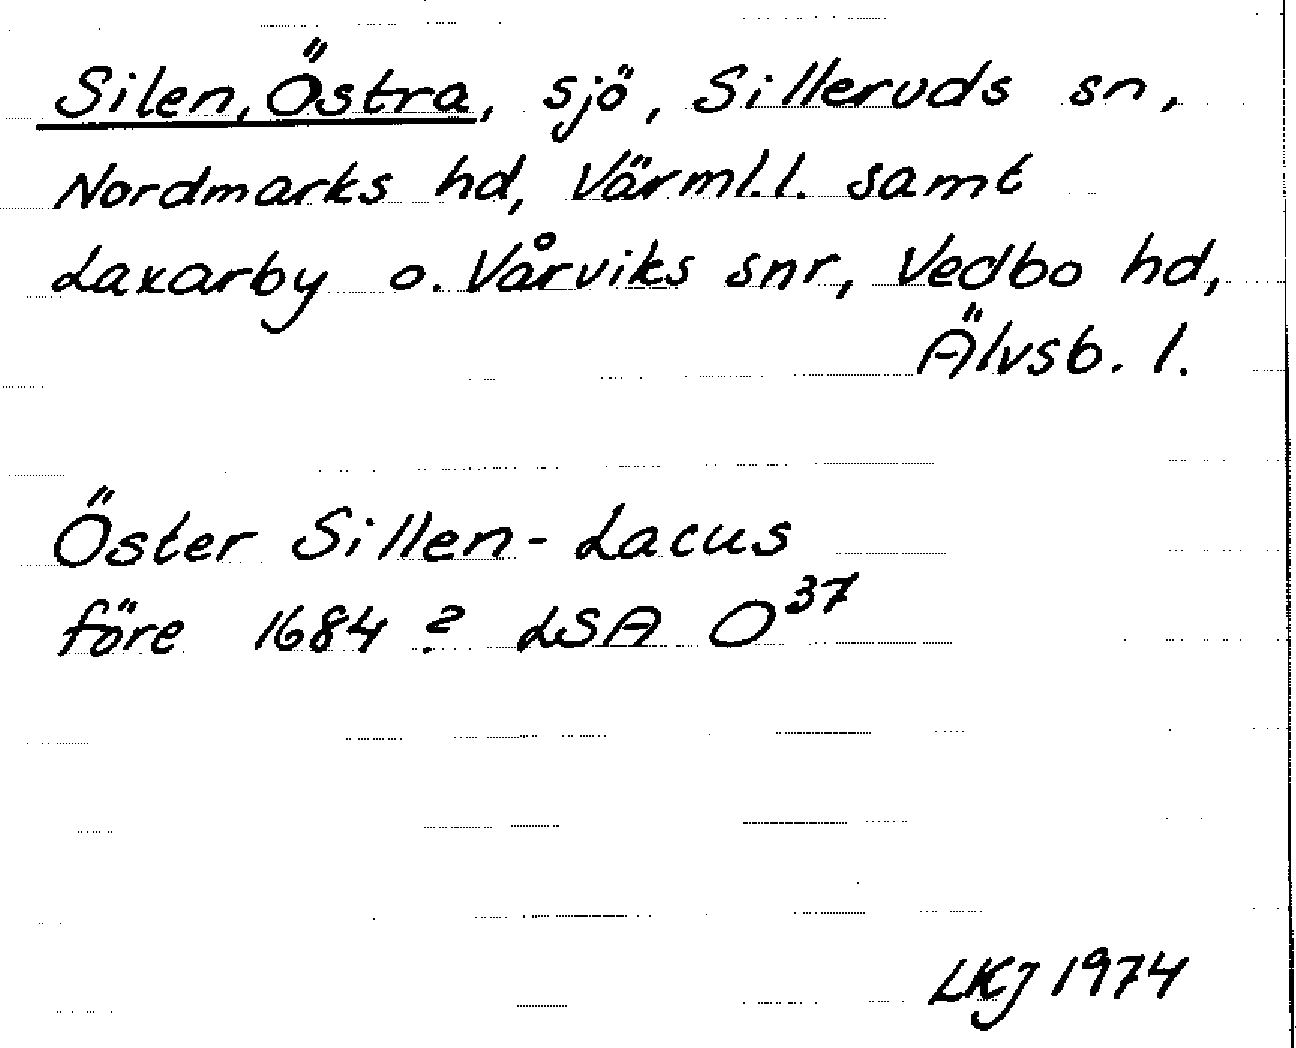 Silen, Östra, sjö, Silleruds sn,
Nordmarks hd, Värml.l. samt
Laxarby o. Vårviks snr, Vedbo hd,
Älvsb. l.
Öster Sillen - Lacus
före 1684? LSA O³⁷
LKJ 1974